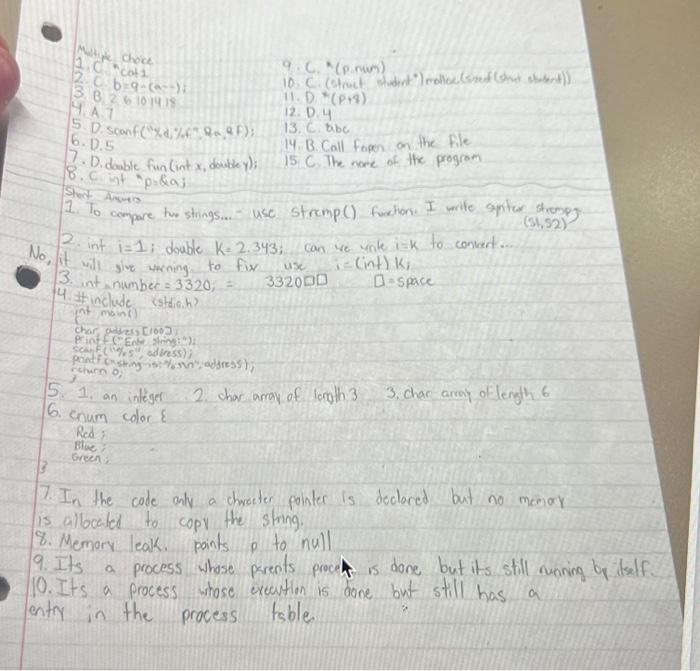 Multiple Choice
1. C. *cat1
2. C. b=9-(a--);
3. B. 2 6 10 14 18
4. A. 7
5. D. scanf("%d,%f",&a,&f);
6. D. 5
7. D. double fun(int x, double y);
8. C. int *p=&a;
9. C. *(p.num)
10. C. (struct student*)malloc(sizeof(struct student))
11. D. *(p+8)
12. D. 4
13. C. abc
14. B. Call fopen on the file
15. C. The name of the program
Short Answers
1. To compare two strings... - use strcmp() function. I write syntax strcmp
(s1,s2)
2. int i=1; double k=2.343; can we write i=k to convert...
No, it will give warning to fix use i=(int)k;
3. int number = 3320; = 3320□□ □=space
4. #include <stdio.h>
int main()
{
char address[100];
printf("Enter string:");
scanf("%s", address);
printf("string is:%s\n", address);
return 0;
}
5. 1. an integer 2. char array of length 3 3. char array of length 6
6. enum color {
Red;
Blue;
Green;
}
7. In the code only a character pointer is declared but no memory
is allocated to copy the string.
8. Memory leak. points p to null
9. Its a process whose parents process is done but its still running by itself.
10. Its a process whose execution is done but still has a
entry in the process table.